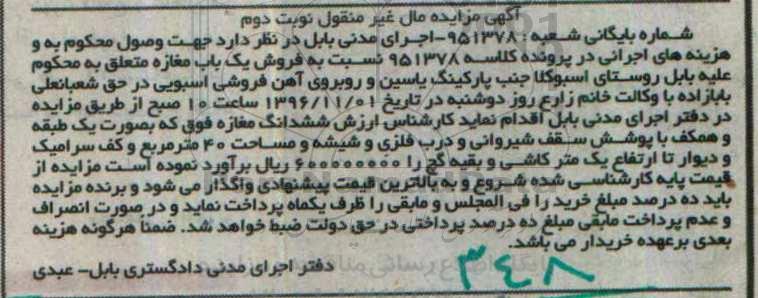 آگهی مزایده مال غیر منقول نوبت دوم
شماره بایگانی شعبه : ۹۵۱۳۷۸-اجرای مدنی بابل در نظر دارد جهت وصول محکوم به و
هزینه های اجرائی در پرونده کلاسه ۹۵۱۳۷۸ نسبت به فروش یک باب مغازه متعلق به محکوم
علیه بابل روستای اسبوکلا جنب پارکینگ یاسین و روبروی آهن فروشی اسبویی در حق شعبانعلی
بابازاده با وکالت خانم زارع روز دوشنبه در تاریخ ۱۳۹۶/۱۱/۰۱ ساعت ۱۰ صبح از طریق مزایده
در دفتر اجرای مدنی بابل اقدام نماید کارشناس ارزش ششدانگ مغازه فوق که بصورت یک طبقه
و همکف با پوشش سقف شیروانی و درب فلزی و شیشه و مساحت ۴۰ مترمربع و کف سرامیک
و دیوار تا ارتفاع یک متر کاشی و بقیه گچ را ۶۰۰۰۰۰۰۰۰ ریال برآورد نموده است مزایده از
قیمت پایه کارشناسی شده شروع و به بالاترین قیمت پیشنهادی واگذار می شود و برنده مزایده
باید ده درصد مبلغ خرید را فی المجلس و مابقی را ظرف یکماه پرداخت نماید و در صورت انصراف
و عدم پرداخت مابقی مبلغ ده درصد پرداختی در حق دولت ضبط خواهد شد. ضمناً هرگونه هزینه
بعدی برعهده خریدار می باشد.
دفتر اجرای مدنی دادگستری بابل- عبدی
۳۴۸